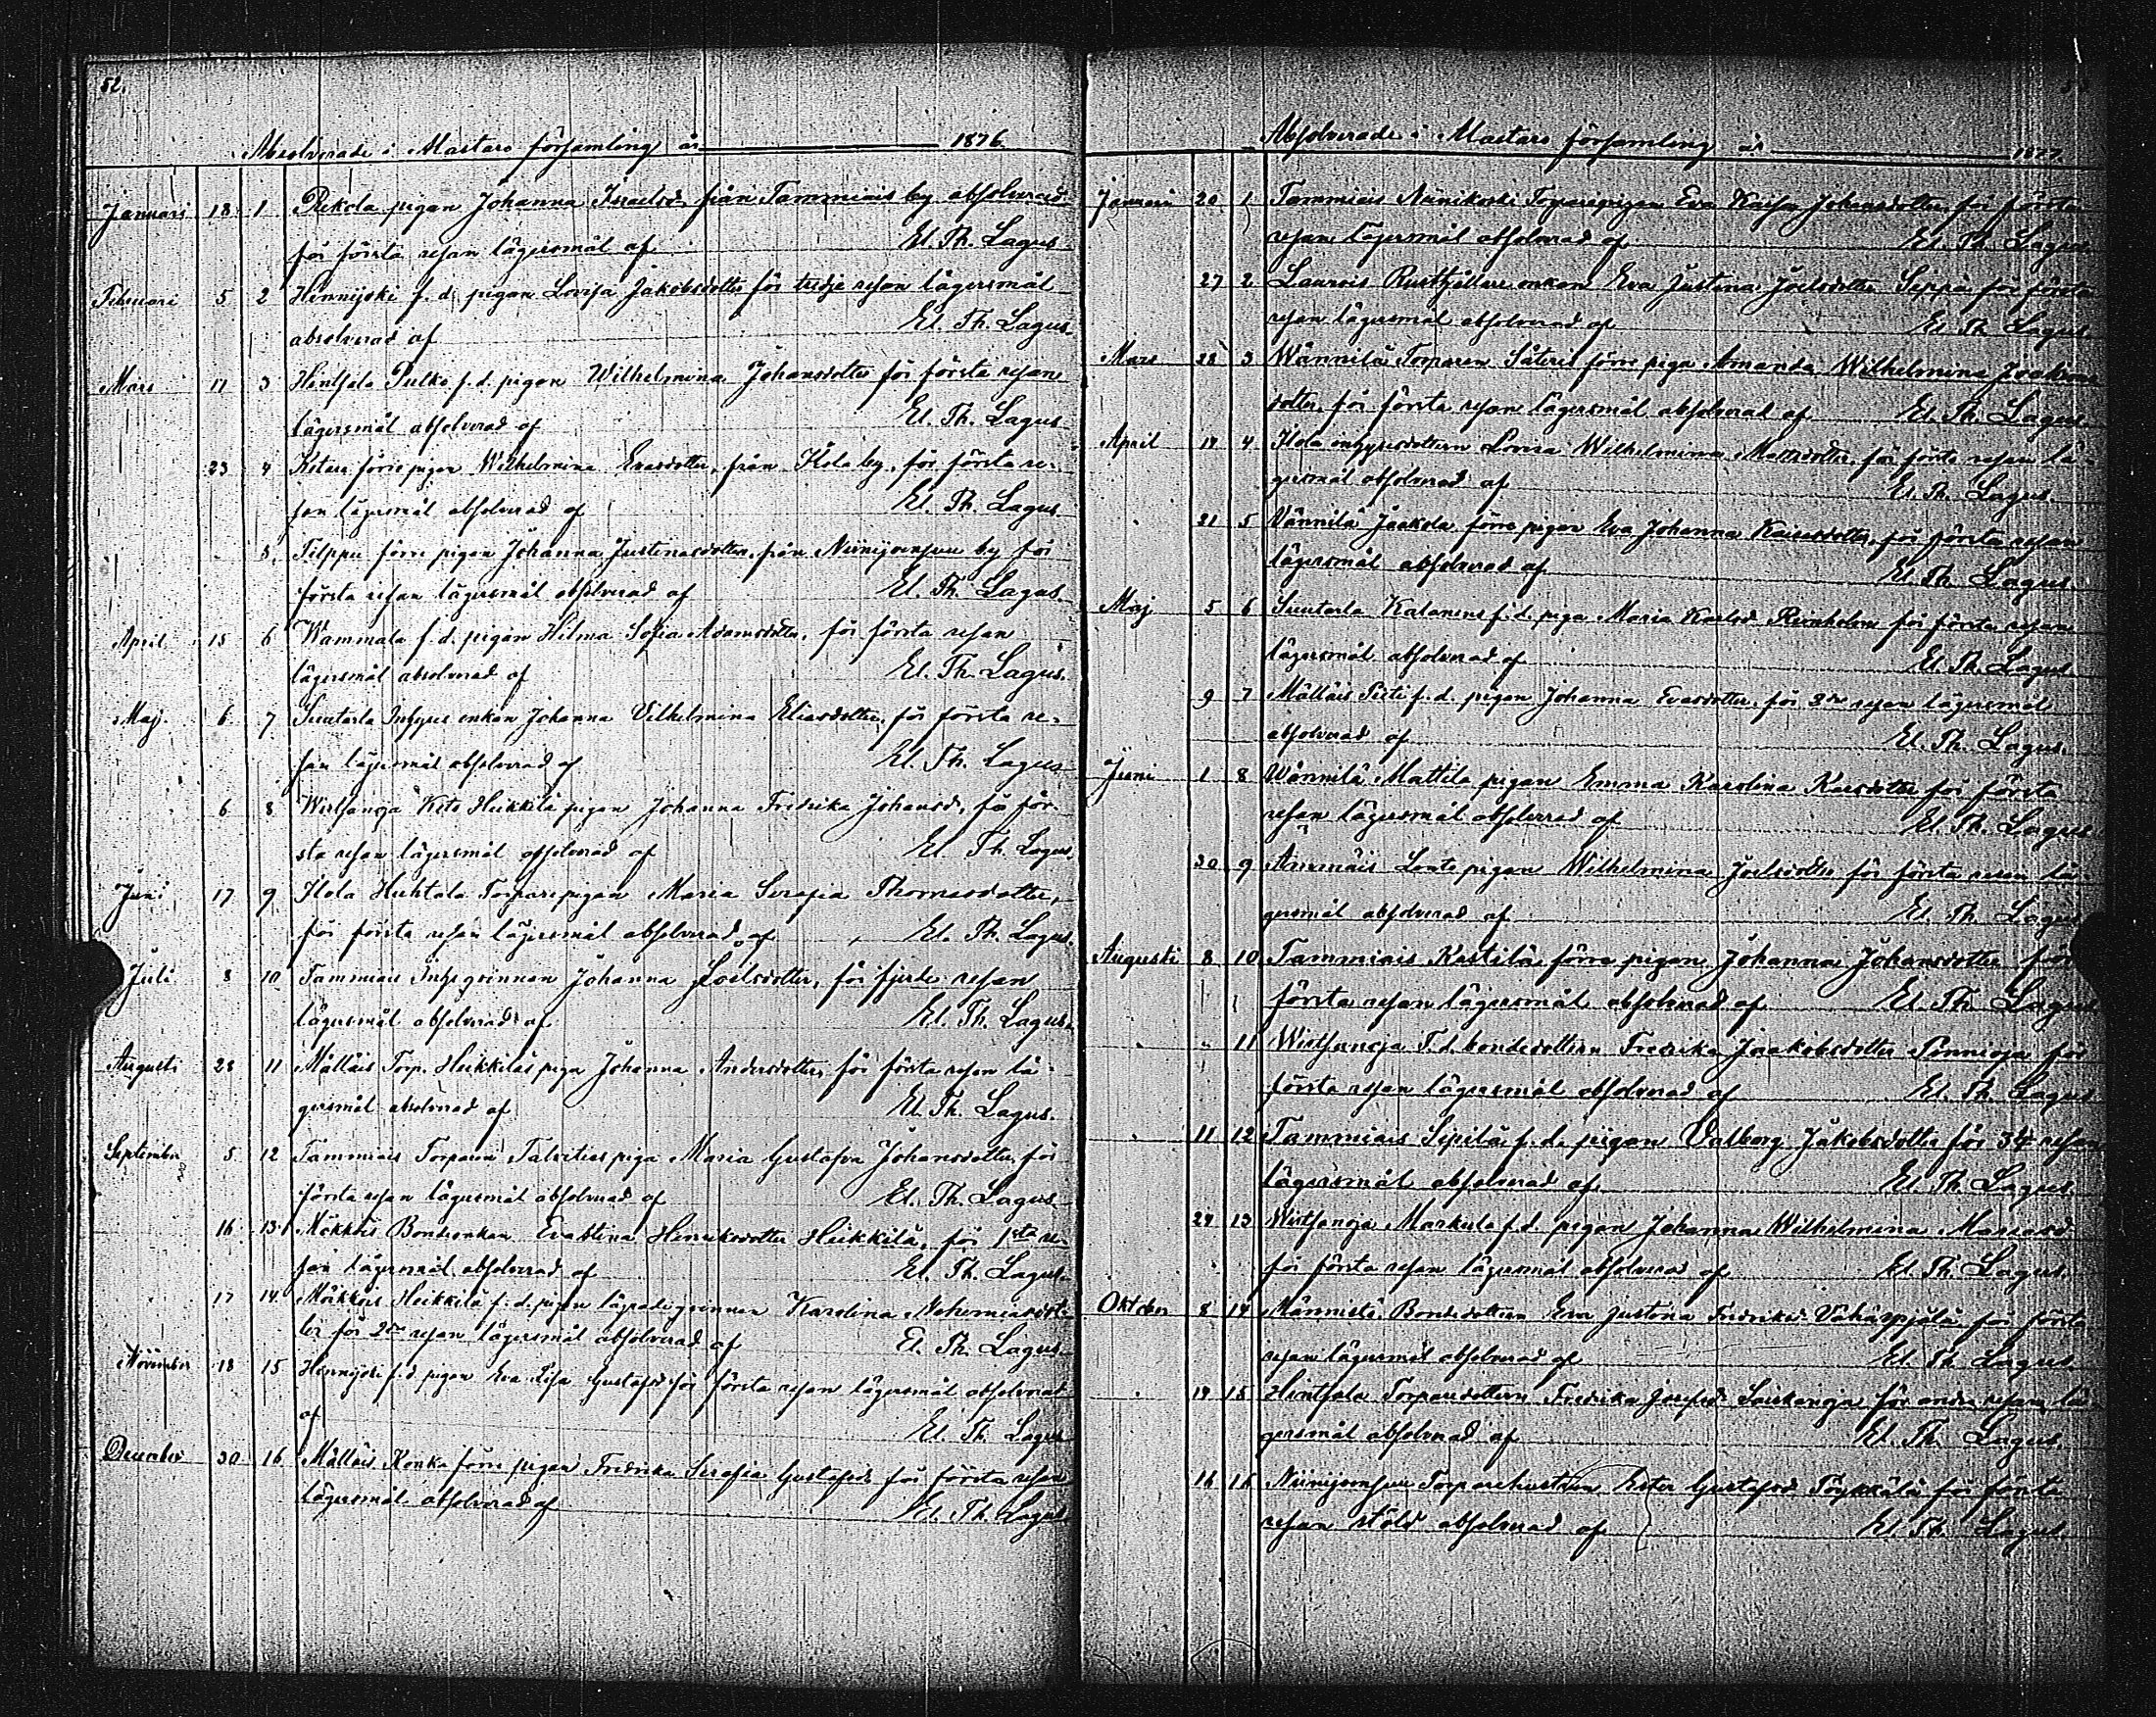 52.
Absolverade i Mastars församling år 1876.
Januari 18 1 Pekola pigan Johanna Israelsd. från Tammiais by absolverad
för första resan lägersmål af El. Th. Lagus
Februari 5 2 Hennijoki f.d. pigan Lovisa Jakobsdotter för tredje resan lägersmål
absolverad af El. Th. Lagus.
Mars 17 3 Hintsala Pulko f.d. pigan Wilhelmina Johansdotter för första resan
lägersmål absolverad af El. Th. Lagus
23 4 Ketara förre pigan Wilhelmina Evasdotter, från Ilola by, för första re-
san lägersmål absolverad af El. Th. Lagus
5. Filppu förre pigan Johanna Justinasdotter, från Niinijoensuu by för
första resan lägersmål absolverad af El. Th. Lagus.
April 15 6 Wammala f.d. pigan Hilma Sofia Adamsdotter, för första resan
lägersmål absolverad af El. Th. Lagus.
Maj. 6 7 Suutarla Inhyses enkan Johanna Vilhelmina Eliasdotter, för första re-
san lägersmål absolverad af El. Th. Lagus
6 8 Wirtsanoja Heikkilä pigan Johanna Fredrika Johansd., för för-
sta resan lägersmål absolverad af El. Th. Lagus.
Juni 17 9 Ilola Huhtala Torparepigan Maria Serafia Thomasdotter,
för första resan lägersmål absolverad af El. Th. Lagus.
Juli 8 10 Tammiais Johanna Joelsdotter, för fjerde resan
lägersmål absolverad af El. Th. Lagus.
Augusti 28 11 Mälläis Torp. Heikkiläs piga Johanna Andersdotter, för första resan lä-
gersmål absolverad af El. Th. Lagus.
September 5 12 Tammiais Torparen Talvities piga Maria Gustafva Johansdotter, för
första resan lägersmål absolverad af El. Th. Lagus
16 13 Mäkkäis Bondeenkan Evastina Henriksdotter Heikkilä, för 1sta re-
san lägersmål absolverad af El. Th. Lagus.
17 14 Mäkkäis Heikkilä f.d. pigan lägradeqvinnan Karolina Nehemiasdot-
ter för 2dra resan lägersmål absolverad af El. Th. Lagus.
November 18 15 Hennijoki f.d. pigan Eva Lisa Gustafsd. för första resan lägersmål absolverad
af El. Th. Lagus
December 30 16 Mälläis Konka förre pigan Fredrika Serafia Gustafsd. för första resan
lägersmål absolverad af El. Th. Lagus
Absolverade i Mastars församling år 1877.
Januari 20 1 Tammiais Niinikoski Torparepigan Eva Kajsa Johansdotter för första
resan lägersmål absolverad af El. Th. Lagus
27 2 Laurois Rusthållare enkan Eva Justina Joelsdotter Seppä för första
resan lägersmål absolverad af El. Th. Lagus
Mars 28 3 Wännilä Torparen förre piga Amanda Wilhelmina
dotter, för första resan lägersmål absolverad af El. Th. Lagus.
April 14 4 Ilola Lovisa Wilhelmina Mattsdotter, för första resan lä-
gersmål absolverad af El. Th. Lagus.
21 5 Wännilä Jaakola förre pigan Eva Johanna Kaisasdotter, för första resan
lägersmål absolverad af El. Th. Lagus.
Maj 5 6 Suutarla Kalanens f.d. piga Maria Karlsd. Reinholm för första resan
lägersmål absolverad af El. Th. Lagus
9 7 Mälläis f.d. pigan Johanna Evasdotter, för 2dra resan lägersmål
absolverad af El. Th. Lagus.
Juni 1 8 Wännilä Mattila pigan Emma Karolina Karsdotter för första
resan lägersmål absolverad af El. Th. Lagus.
30 9 Ammäis pigan Wilhelmina Joelsdotter för första resan lä-
gersmål absolverad af El. Th. Lagus
Augusti 8 10 Tammiais Kestilä förre pigan Johanna Johansdotter för
första resan lägersmål absolverad af El. Th. Lagus
" 11 Wirtsanoja F.d. bondedottern Fredrika Jaakobsdotter för
första resan lägersmål absolverad af El. Th. Lagus
11 12 Tammiais Sipilä f.d. pigan Valborg Jakobsdotter för 3dje resan
lägersmål absolverad af El. Th. Lagus.
24 13 Wirtsanoja Markula f.d. pigan Johanna Wilhelmina
för första resan lägersmål absolverad af El. Th. Lagus.
Oktober 8 14 Männistö Bondedottern Eva Justina Fredriksd. Vähäspjälä för första
resan lägersmål absolverad af El. Th. Lagus.
14 15 Hintsala Torparedottern Fredrika Josefsd. för andra resan lä-
gersmål absolverad af El. Th. Lagus.
16 16 Niinijoensuu Torparehustrun Ester Gustafsd. för första
resan stöld absolverad af El. Th. Lagus